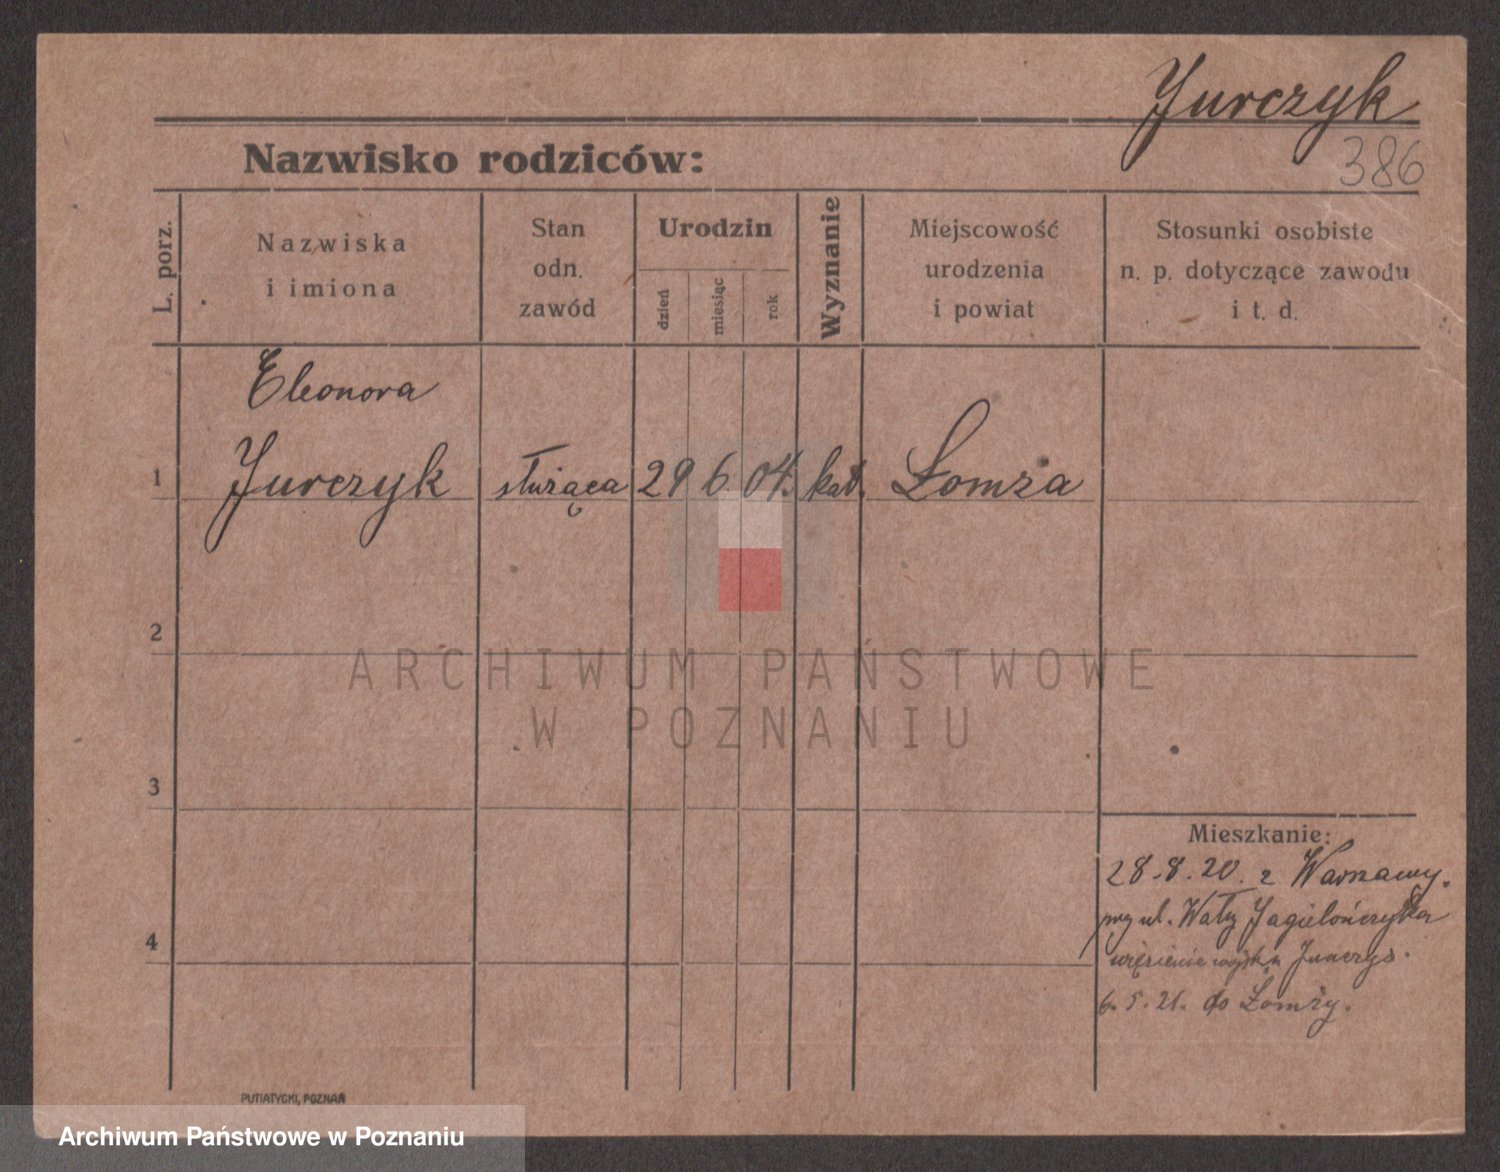 Jurczyk
386
Nazwisko rodziców:
L. porz.
Nazwiska
i imiona
Stan
odn.
zawód
Urodzin
dzień
miesiąc
rok
Wyznanie
Miejscowość
urodzenia
i powiat
Stosunki osobiste
n. p. dotyczące zawodu
i t. d.
Eleonora
1 Jurczyk służąca 29 6 04. kat. Łomża
2
ARCHIWUM PAŃSTWOWE
W POZNANIU
3
Mieszkanie:
28.8.20. z Warszawy.
przy ul. Wały Jagielończyka
4
więzienie wojsk. u Jurczys.
6.5.21. do Łomży.
PUTIATYCKI, POZNAŃ
Archiwum Państwowe w Poznaniu